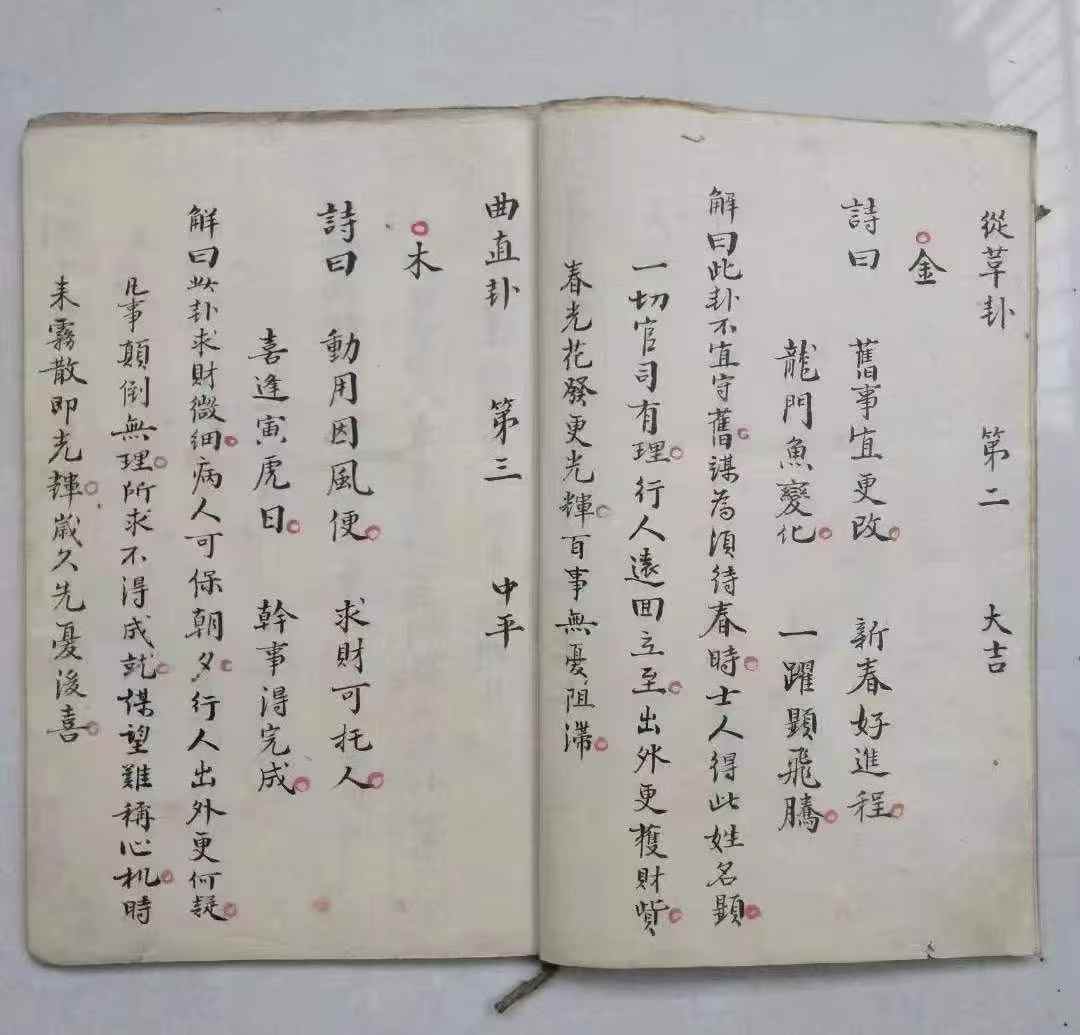 從革卦 第二 大吉
金
詩曰 舊事宜更改 新春好進程
龍門魚變化 一躍顯飛騰
解曰此卦不宜守舊謀為須待春時士人得此姓名顯
一切官司有理行人遠回立至出外更獲財貲
春光花發更光輝百事無憂阻滯
曲直卦 第三 中平
木
詩曰 動用因風便 求財可托人
喜逢寅虎日 幹事得完成
解曰此卦求財微細病人可保朝夕行人出外更何疑
凡事顛倒無理所求不得成就謀望難稱心机時
来霧散即光輝歲久先憂後喜